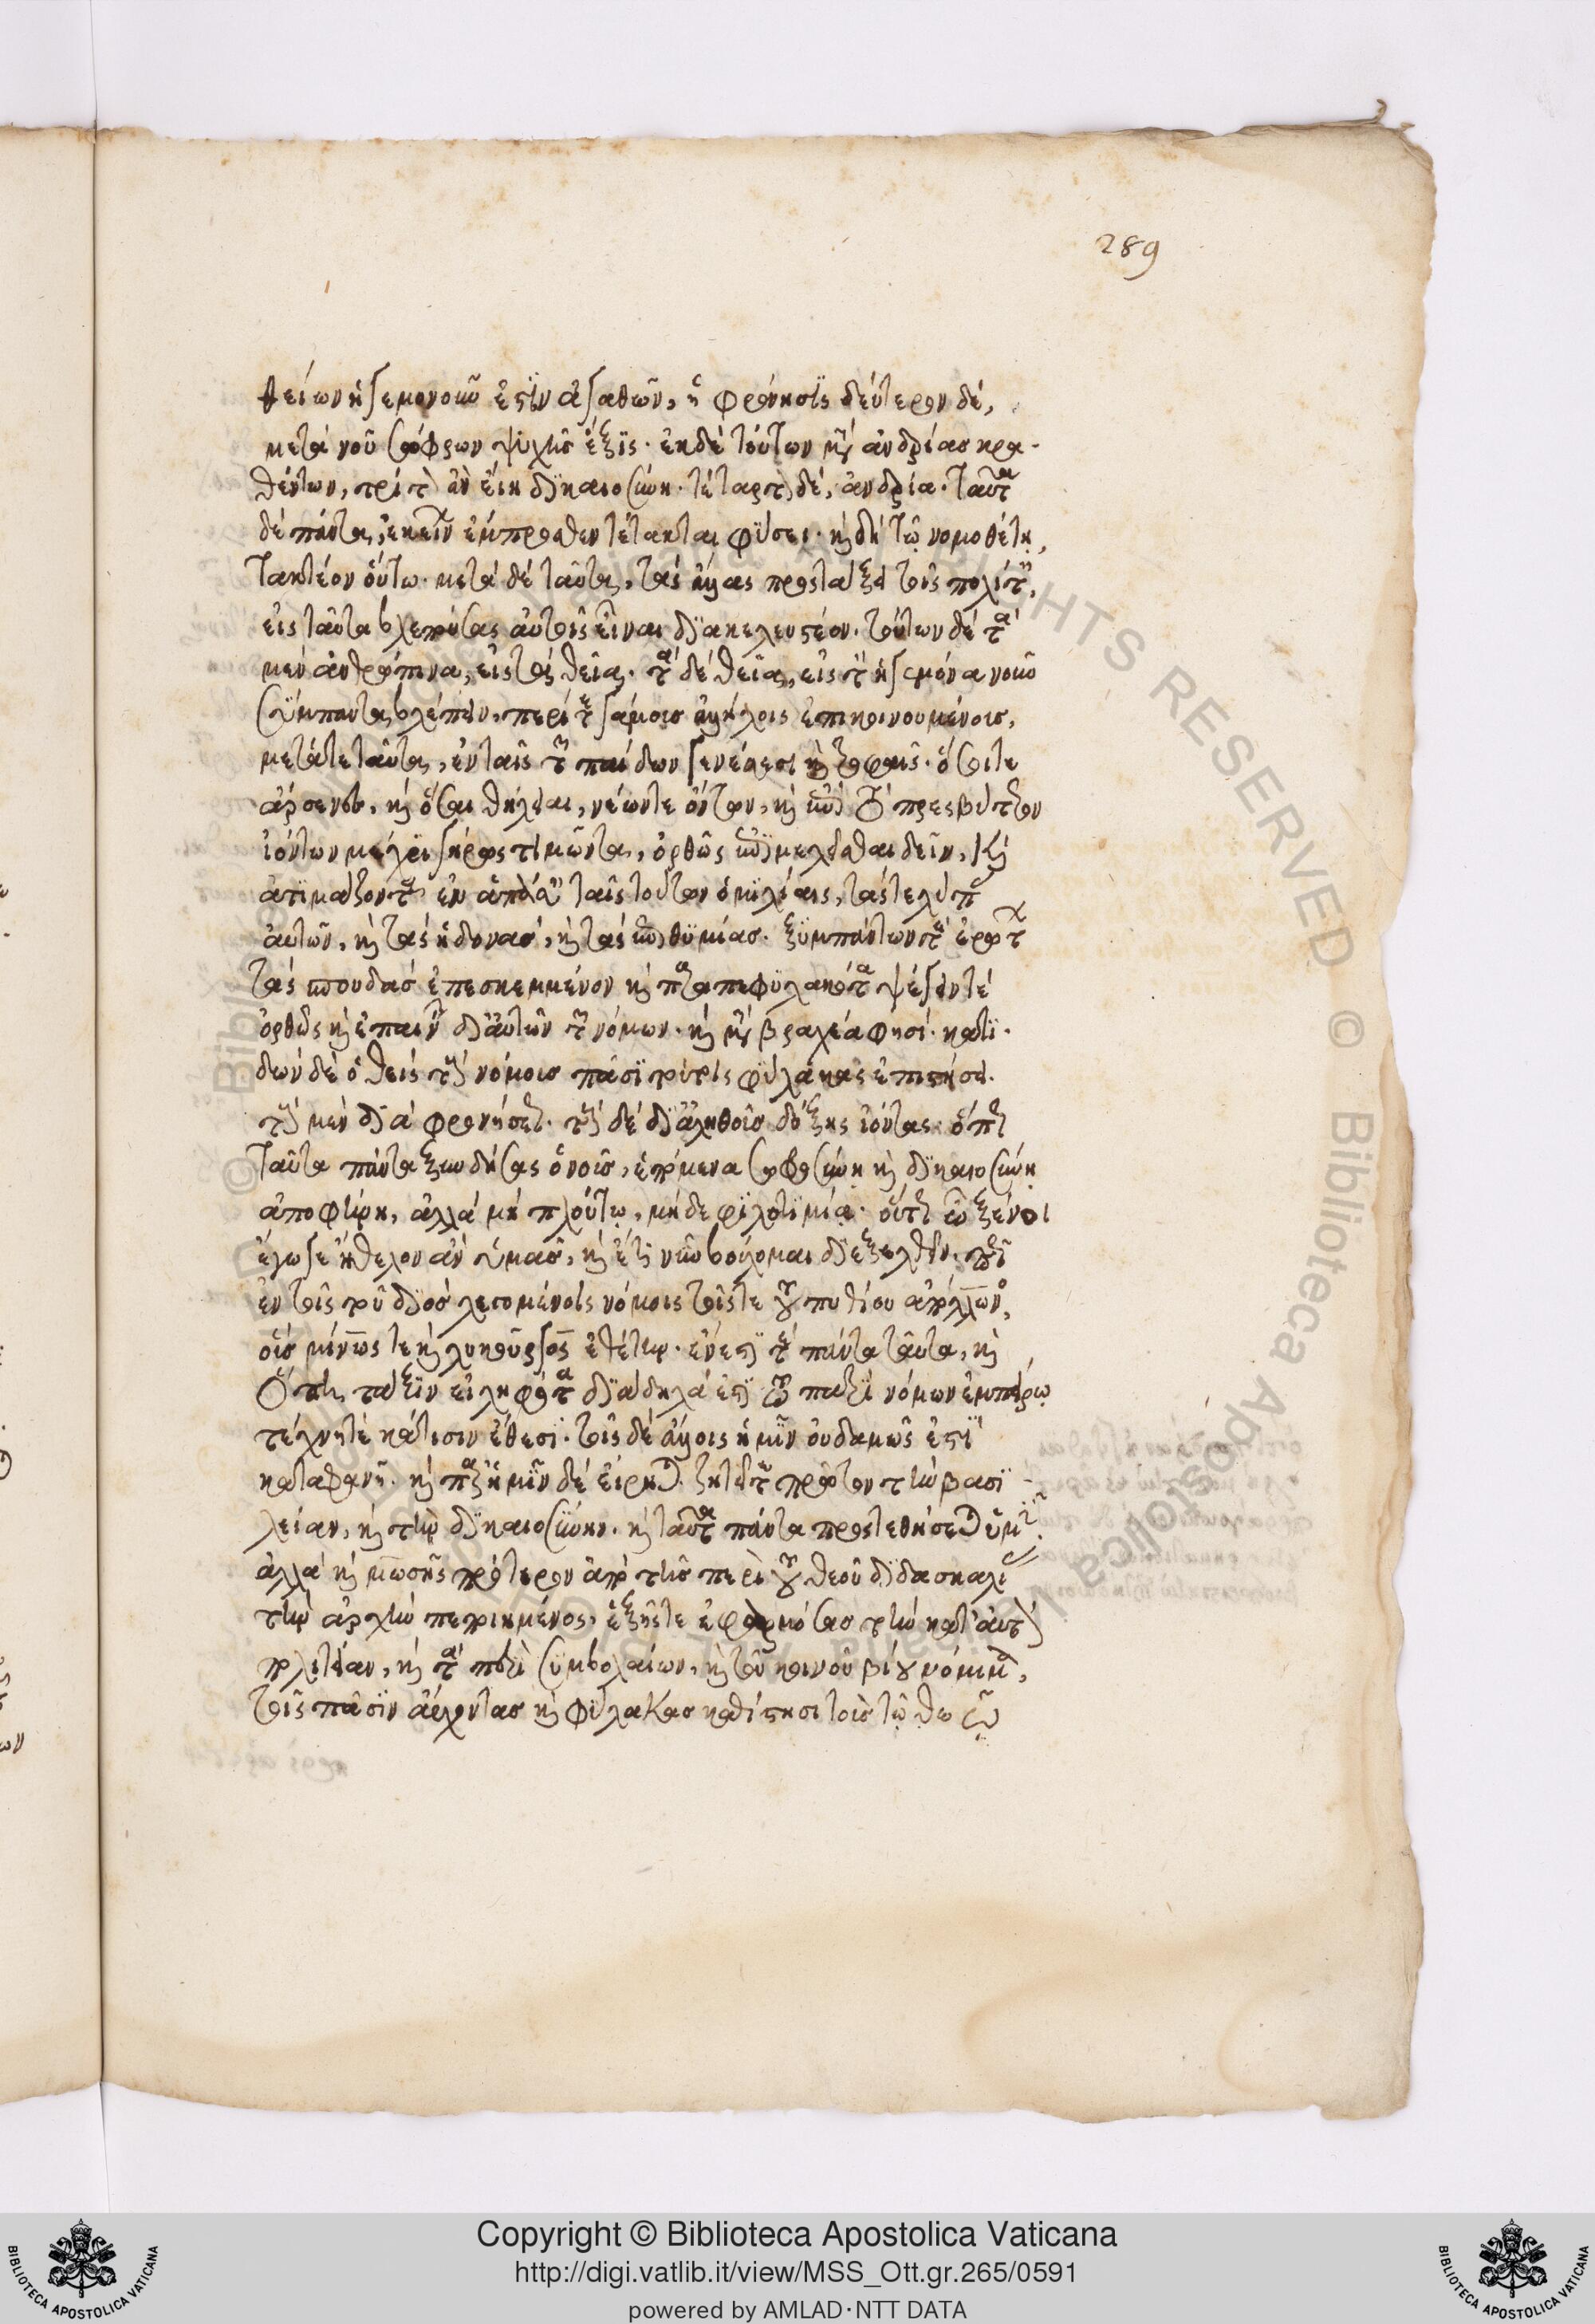 289
θείων ἡγεμονοῦν ἐστὶν ἀγαθῶν, ἡ φρόνησις δεύτερον δέ,
μετὰ νοῦ σώφρων ψυχῆς ἕξις. ἐκ δὲ τούτων μετ' ἀνδρίας κρα-
θέντων, τρίτον ἂν εἴη δικαιοσύνη. τέταρτον δέ, ἀνδρία. ταῦτα
δὲ πάντα, ἐκείνων ἔμπροσθεν τέτακται φύσει. καὶ δὴ τῷ νομοθέτῃ,
τακτέον οὕτω. μετὰ δὲ ταῦτα, τὰς ἄλλας προστάξεις τοῖς πολίταις,
εἰς ταῦτα βλεπούσας αὐτοῖς εἶναι διακελευστέον. τούτων δὲ τὰ
μὲν ἀνθρώπινα, εἰς τὰ θεῖα. τὰ δὲ θεῖα, εἰς τὸν ἡγεμόνα νοῦν
σύμπαντα βλέπειν. περί τε γάμοις ἀλλήλοις ἐπικοινουμένοις,
μετά τε ταῦτα, ἐν ταῖς τῶν παίδων γενέσεσι καὶ τροφαῖς. ὅσοι τε
ἄρσενες, καὶ ὅσαι θήλειαι, νέων τε ὄντων, καὶ ἐπὶ τὸ πρεσβύτερον
ἰόντων μέχρι γήρως τιμῶντα, ὀρθῶς ἐπιμελεῖσθαι δεῖν, καὶ
ἀτιμάζοντα ἐν ἁπάσαις ταῖς τούτων ὁμιλίαις, τάς τε λύπας
αὐτῶν, καὶ τὰς ἡδονὰς, καὶ τὰς ἐπιθυμίας. ξυμπάντων τε ἐρώτων
τὰς σπουδὰς ἐπεσκεμμένον καὶ παραπεφυλακότα ψέγειν τε
ὀρθῶς καὶ ἐπαινεῖν δι' αὐτῶν τῶν νόμων. καὶ μετὰ βραχέα φησί. κατι-
δὼν δὲ ὁ θεὶς τοὺς νόμους πᾶσι τούτοις φύλακας ἐπιστήσει.
τοὺς μὲν διὰ φρονήσεως. τοὺς δὲ δι' ἀληθοῦς δόξης ἰόντας. ὅπως
ταῦτα πάντα ξυνδήσας ὁ νοῦς, ἑπόμενα σωφροσύνῃ καὶ δικαιοσύνῃ
ἀποφήνῃ, ἀλλὰ μὴ πλούτῳ, μηδὲ φιλοτιμίᾳ. οὕτως ὦ ξένοι
ἔγωγε ἤθελον ἂν ὑμᾶς, καὶ ἔτι νῦν βούλομαι διεξελθεῖν. πῶς
ἐν τοῖς τοῦ διὸς λεγομένοις νόμοις τοῖς τε τοῦ πυθίου ἀπόλλωνος,
οὓς μίνως τε καὶ λυκοῦργος ἐθέτην. ἔνεστί τε πάντα ταῦτα, καὶ
ὅπῃ τάξιν εἰληφότα διάδηλά ἐστι τῷ περὶ νόμων ἐμπείρῳ
τέχνῃ τε καί τισιν ἔθεσι. τοῖς δὲ ἄλλοις ἡμῖν οὐδαμῶς ἐστὶ
καταφανῆ. καὶ παρ' ἡμῖν δὲ εἴρηται. ζητεῖτε πρῶτον τὴν βασι-
λείαν, καὶ τὴν δικαιοσύνην. καὶ ταῦτα πάντα προστεθήσεται ὑμῖν.
ἀλλὰ καὶ μωσῆς πρότερον ἀπὸ τῆς περὶ τοῦ θεοῦ διδασκαλίας
τὴν ἀρχὴν πεποιημένος, ἑξῆς τε ἐφαρμόσας τὴν κατ' αὐτὴν
πολιτείαν, καὶ τὰ περὶ συμβολαίων, καὶ τοῦ κοινοῦ βίου νόμιμα,
τοῖς πᾶσιν ἄρχοντας καὶ φύλακας καθίστησι τοὺς τῷ θεῷ
Copyright © Biblioteca Apostolica Vaticana
http://digi.vatlib.it/view/MSS_Ott.gr.265/0591
powered by AMLAD·NTT DATA